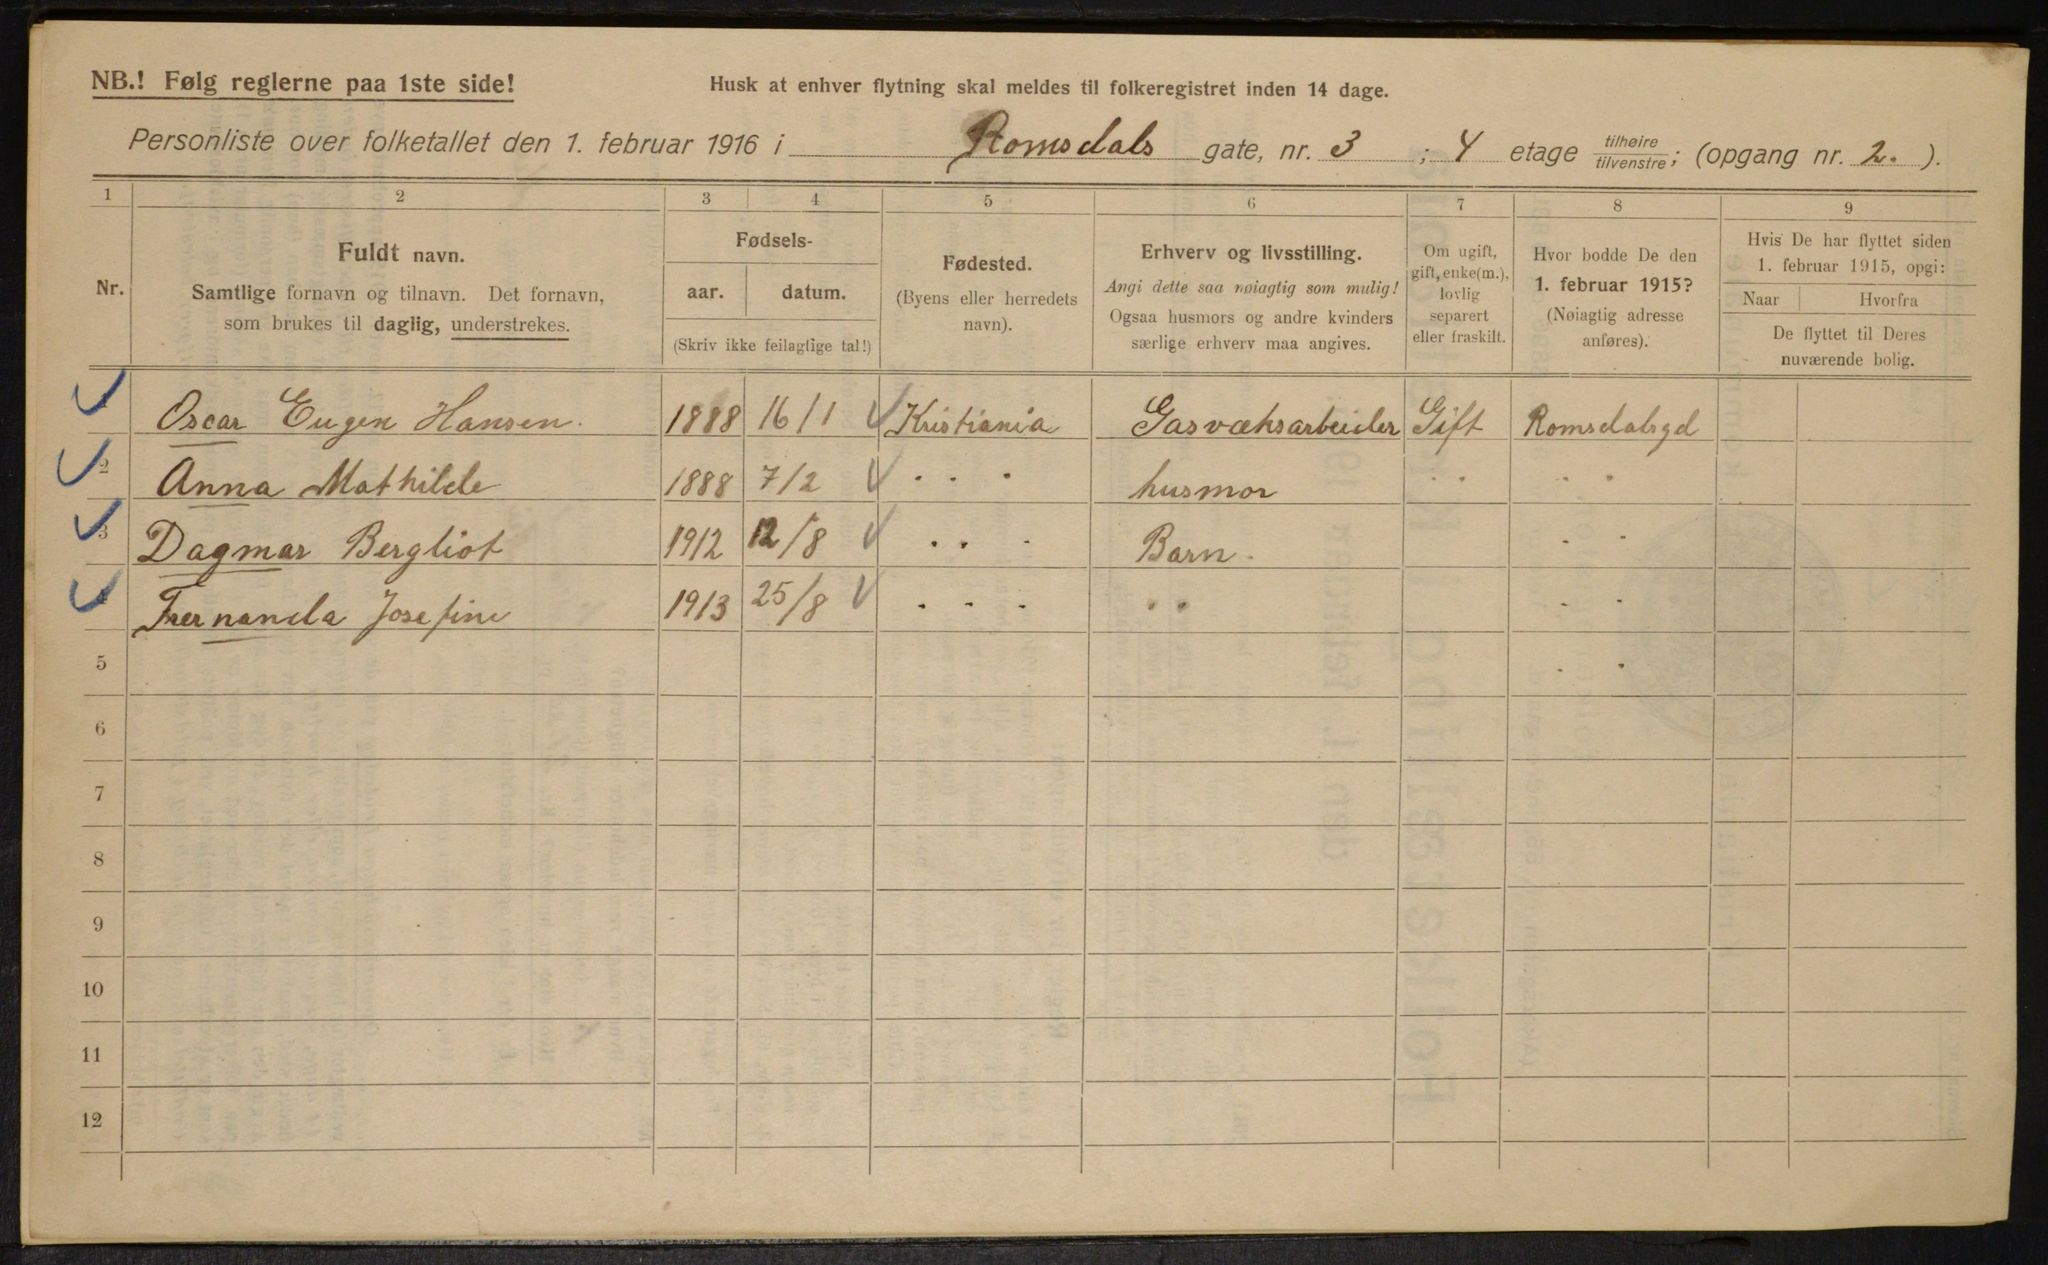 NB.! Følg reglerne paa 1ste side!
Husk at enhver flytning skal meldes til folkeregistret inden 14 dage.
Personliste over folketallet den 1. februar 1916 i Romsdals gate, nr. 3 ; 4 etage tilhøire tilvenstre; (opgang nr. 2. ).
1 2 3 4 5 6 7 8 9
Nr.
Fuldt navn.
Samtlige fornavn og tilnavn. Det fornavn,
som brukes til daglig, understrekes.
Fødsels-
aar. datum.
(Skriv ikke feilagtige tal!)
Fødested.
(Byens eller herredets
navn).
Erhverv og livsstilling.
Angi dette saa nøiagtig som mulig!
Ogsaa husmors og andre kvinders
særlige erhverv maa angives.
Om ugift,
gift, enke(m.),
lovlig
separert
eller fraskilt.
Hvor bodde De den
1. februar 1915?
(Nøiagtig adresse
anføres).
Hvis De har flyttet siden
1. februar 1915, opgi:
Naar Hvorfra
De flyttet til Deres
nuværende bolig.
Oscar Eugen Hansen. 1888 16/1 Kristiania Gasvæksarbeider Gift Romsdalsgd
2 Anna Mathilde 1888 7/2 " " " husmor " " " "
3 Dagmar Bergliot 1912 12/8 " " " Barn. " "
4 Frernanda Josefine 1913 25/8 " " " " " " "
5 " "
6
7
8
9
10
11
12